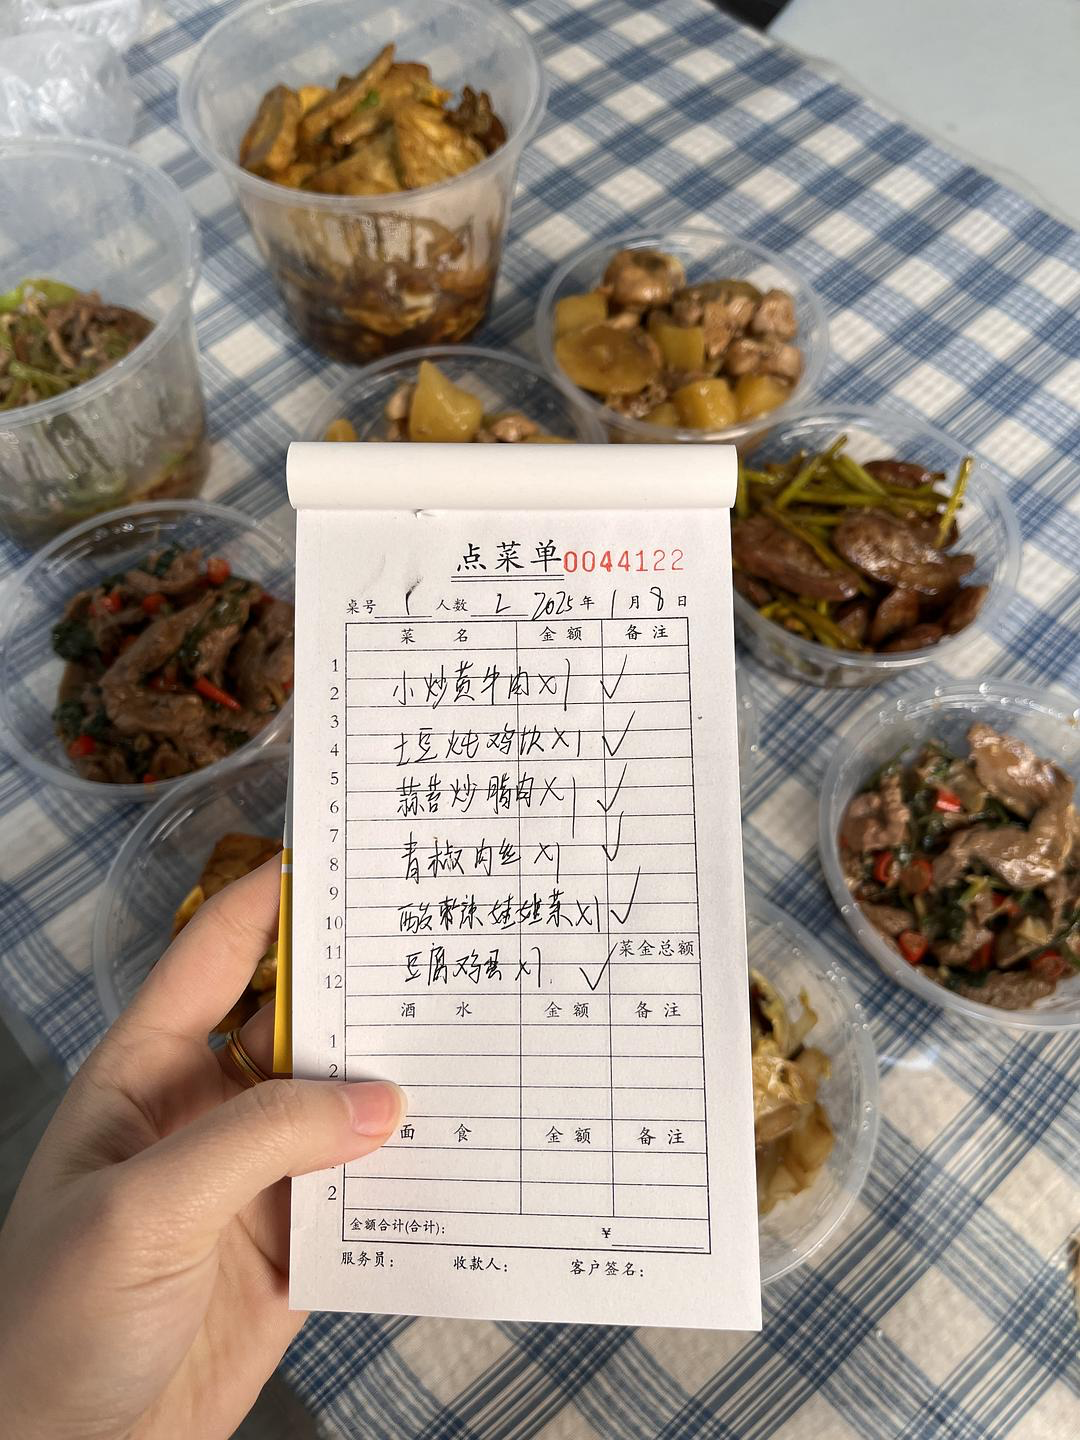 点菜单0044122
桌号 1 人数 2 2025年 1月8日
菜 名 金额 备注
1
2 小炒黄牛肉x1 ✓
3
4 土豆炖鸡块x1 ✓
5
6 蒜苔炒腊肉x1 ✓
7
8 青椒肉丝x1 ✓
9
10 酸辣娃娃菜x1 ✓
11 菜金总额
12 豆腐鸡蛋x1. ✓
酒 水 金额 备注
1
2
面 食 金额 备注
2
金额合计(合计): ¥
服务员: 收款人: 客户签名: